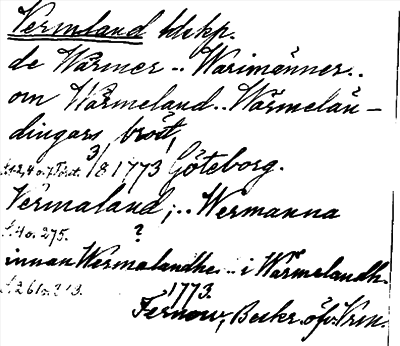 Vermland
de Wärmer .. Warimänner..
om Wärmeland.. Wärmelän-
dingars brott,
3/8 1773 Göteborg.
Vermaland; .. Wermanna
s. 4 o. 275. ?
innan Wermalandhe .. i Wärmelandh.
1773.
Fernow, Beskr. öfv. Vrm.